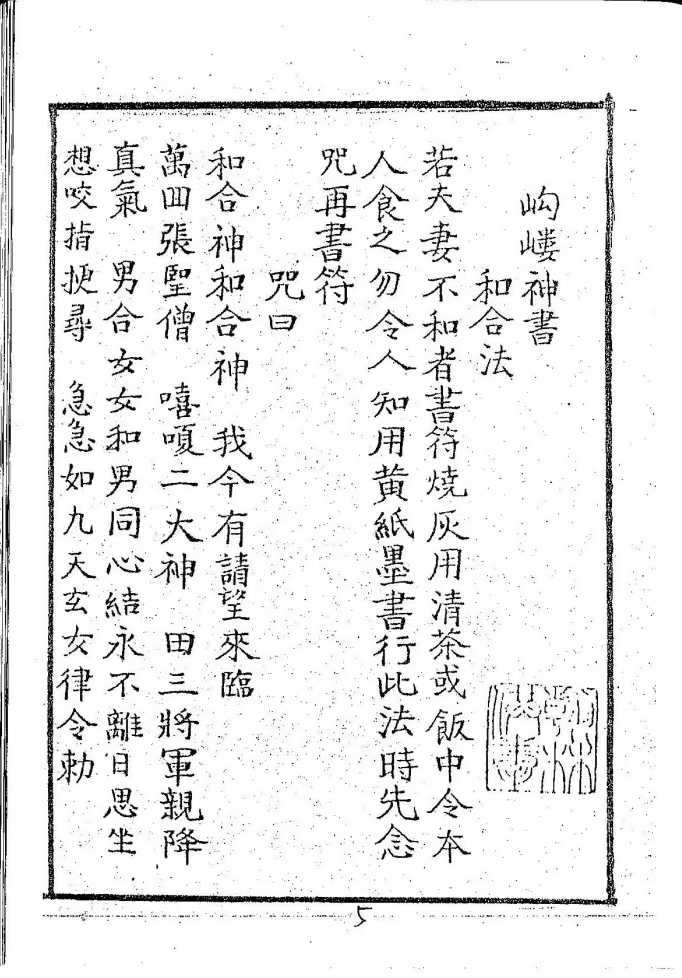 岣嶁神書
和合法
若夫妻不和者書符燒灰用清茶或飯中令本
人食之勿令人知用黄紙墨書行此法時先念
咒再書符
咒曰
和合神和合神 我今有請望來臨
萬回張聖僧 嘻嗄二大神 田三將軍親降
真氣 男合女女和男同心結永不離日思坐
想咬指挭尋 急急如九天玄女律令勅
5